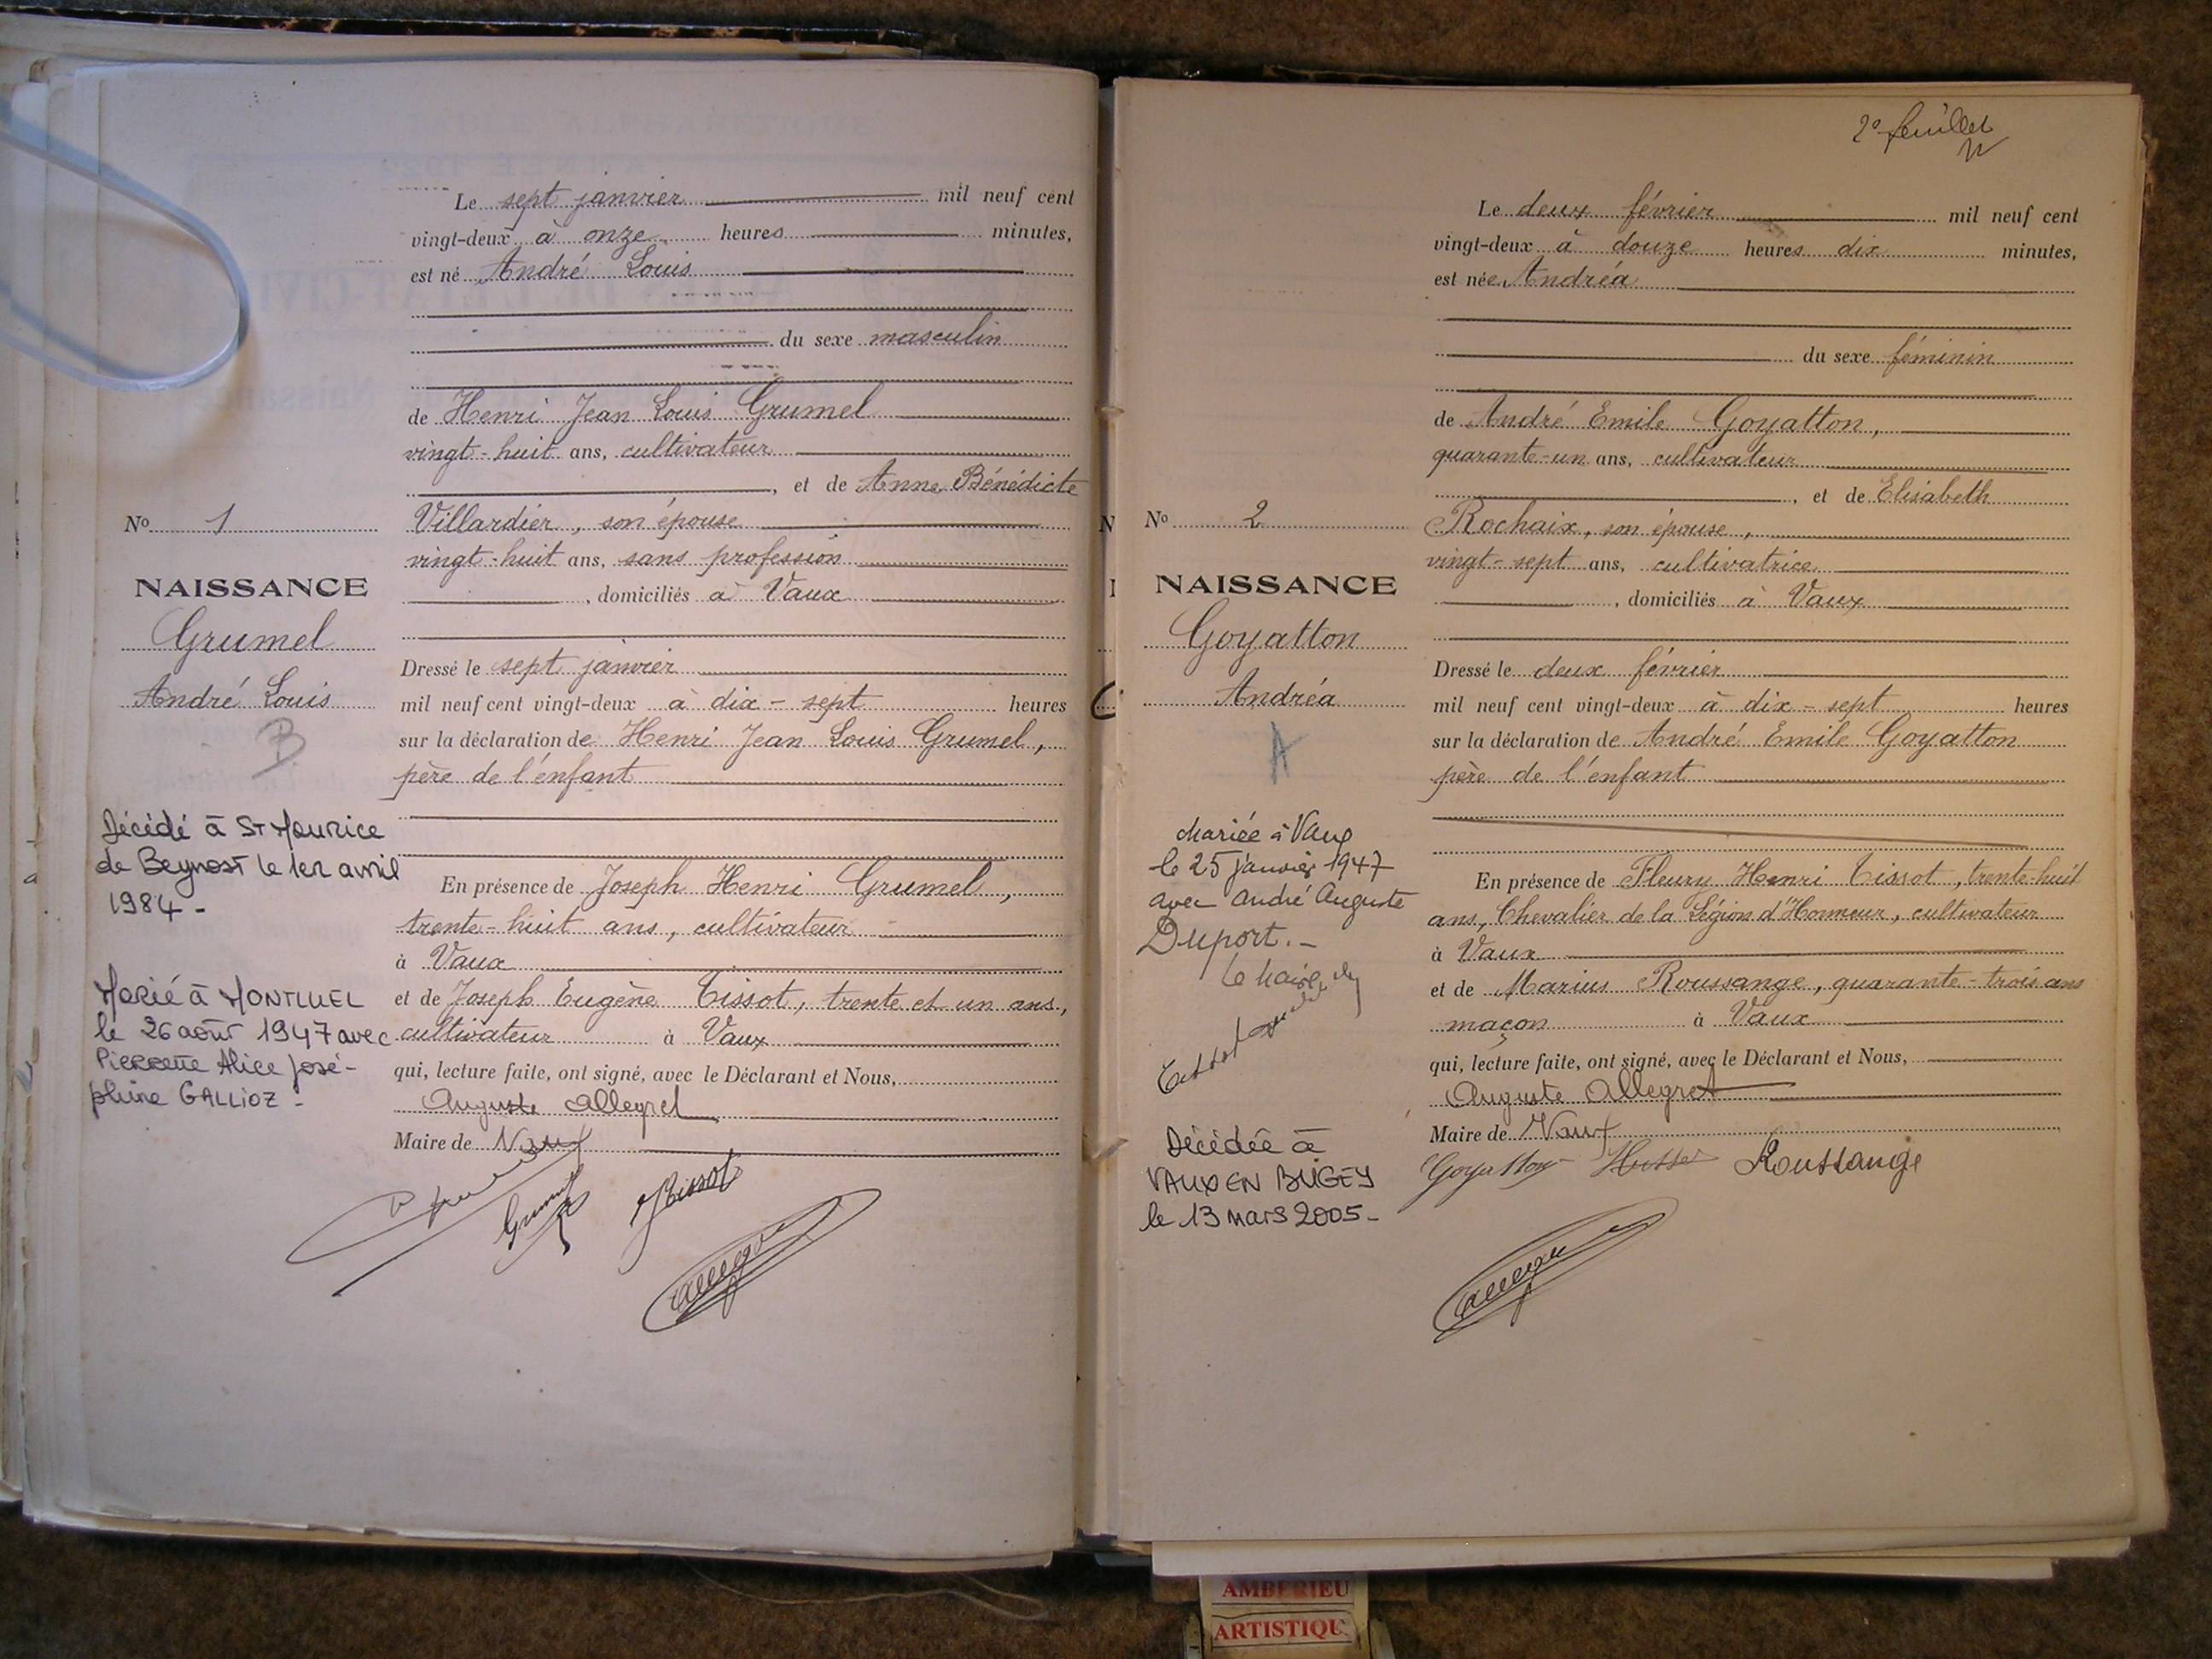 Le sept janvier mil neuf cent
vingt-deux à onze heures minutes,
est né André Louis
du sexe masculin
de Henri Jean Louis Grumel
vingt-huit ans, cultivateur
, et de Anne Bénédicte
Villardier, son épouse
vingt-huit ans, sans profession
, domiciliés à Vaux
Dressé le sept janvier
mil neuf cent vingt-deux à dix-sept heures
sur la déclaration de Henri Jean Louis Grumel,
père de l'enfant
En présence de Joseph Henri Grumel,
trente-huit ans, cultivateur
à Vaux
et de Joseph Eugène Tissot, trente et un ans,
cultivateur à Vaux
qui, lecture faite, ont signé, avec le Déclarant et Nous,
Auguste Allegret
Maire de Vaux
Grumel
Tissot
Allegret
No 1
NAISSANCE
Grumel
André Louis
B
Décédé à St Maurice
de Beynost le 1er avril
1984 -
Marié à MONTLUEL
le 26 août 1947 avec
Pierrette Alice José-
phine GALLIOZ -
2e feuillet
Le deux février mil neuf cent
vingt-deux à douze heures dix minutes,
est née Andréa
du sexe féminin
de André Emile Goyatton,
quarante-un ans, cultivateur
, et de Elisabeth
Rochaix, son épouse,
vingt-sept ans, cultivatrice
, domiciliés à Vaux
Dressé le deux février
mil neuf cent vingt-deux à dix-sept heures
sur la déclaration de André Emile Goyatton
père de l'enfant
En présence de Fleury Henri Tissot, trente-huit
ans, Chevalier de la Légion d'Honneur, cultivateur
à Vaux
et de Marius Roussange, quarante-trois ans
maçon à Vaux
qui, lecture faite, ont signé, avec le Déclarant et Nous,
Auguste Allegret
Maire de Vaux
Goyatton Roussange
Allegret
No 2
NAISSANCE
Goyatton
Andréa
A
Mariée à Vaux
le 25 janvier 1947
avec André Auguste
Duport. -
Le Maire
Décédée à
VAUX EN BUGEY
le 13 mars 2005 -
AMBERIEU
ARTISTIQU